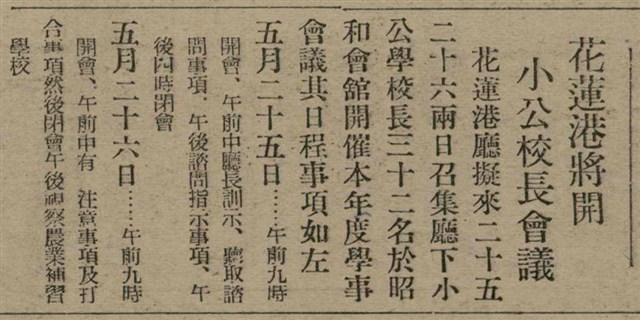 花蓮港將開
小公校長會議
花蓮港廳擬來二十五
二十六兩日召集廳下小
公學校長三十二名於昭
和會館開催本年度學事
會議其日程事項如左
五月二十五日……午前九時
開會、午前中廳長訓示、聽取諮
問事項、午後諮問指示事項、午
後四時閉會
五月二十六日……午前九時
開會、午前中有 注意事項及打
合事項然後閉會午後視察農業補習
學校